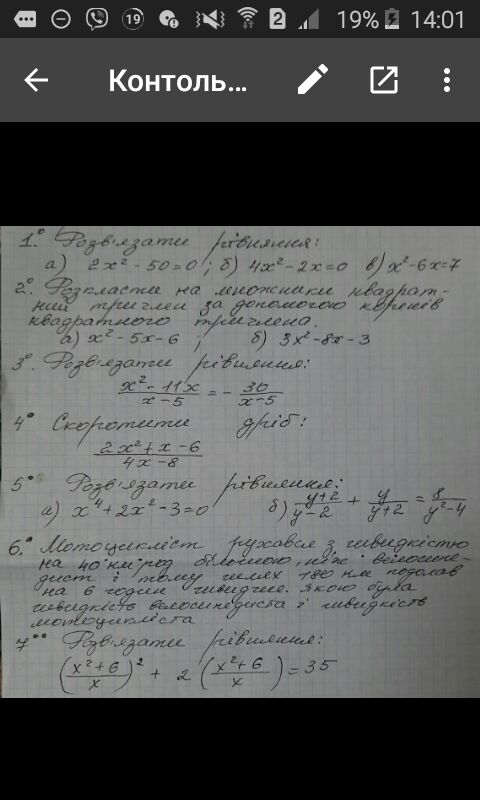 19 2 19% 14:01
Контоль...
1.° Розв'язати рівняння:
а) 2x² - 50 = 0 ; б) 4x² - 2x = 0 в) x² - 6x = 7
2.° Розкласти на множники квадрат-
ний тричлен за допомогою коренів
квадратного тричлена.
а) x² - 5x - 6 ; б) 3x² - 8x - 3
3°. Розв'язати рівняння:
(x² - 11x)/(x - 5) = - 30/(x - 5)
4° Скоротити дріб:
(2x² + x - 6)/(4x - 8)
5° Розв'язати рівняння:
а) x⁴ + 2x² - 3 = 0 б) (y+2)/(y-2) + y/(y+2) = 8/(y² - 4)
6.° Мотоцикліст рухався з швидкістю
на 40 км/год більшою, ніж велосипе-
дист і тому шлях 180 км подолав
на 6 годин швидше. Якою була
швидкість велосипедиста і швидкість
мотоцикліста
7°° Розв'язати рівняння:
((x² + 6)/x)² + 2 ((x² + 6)/x) = 35